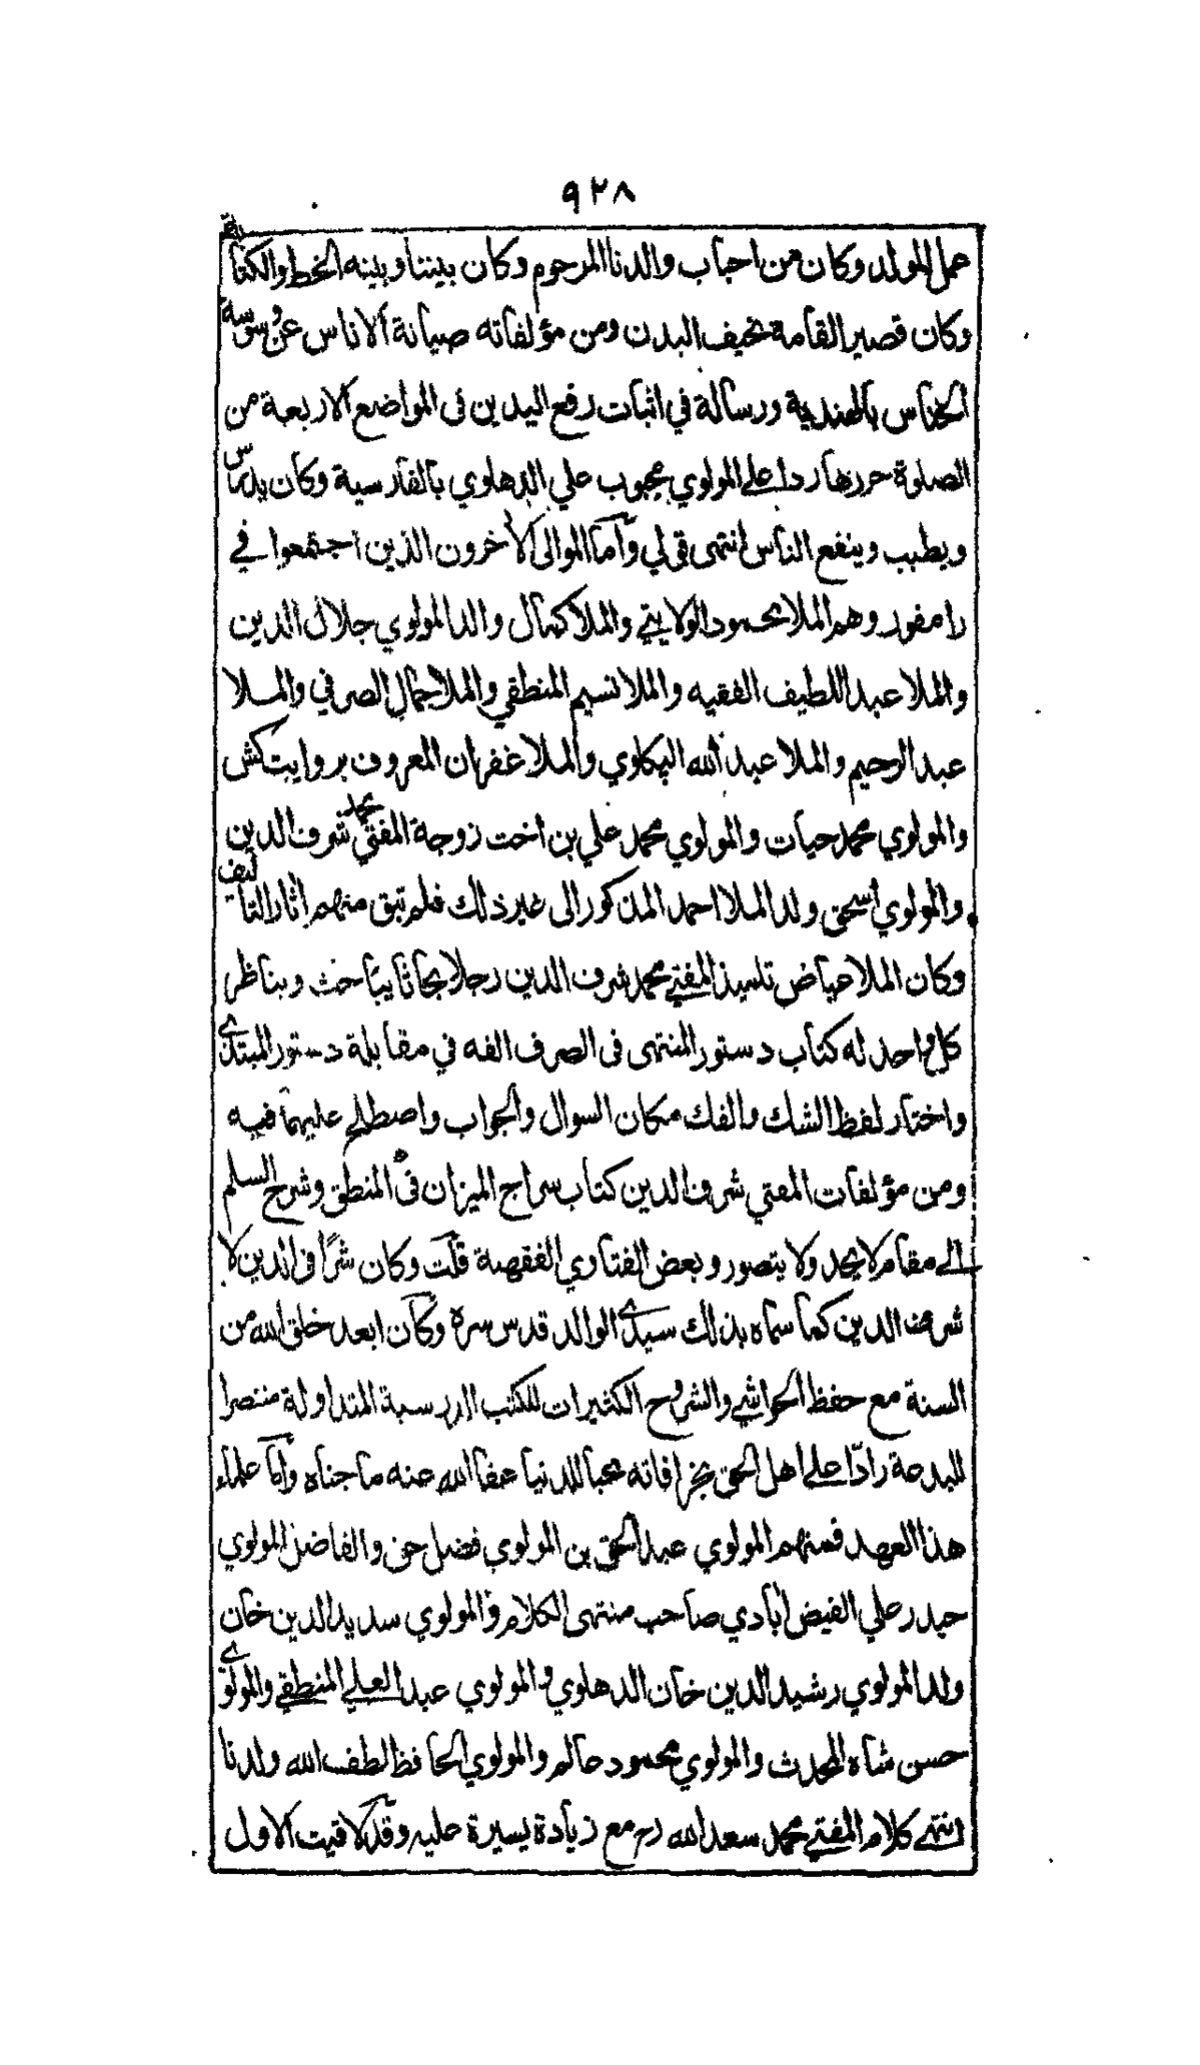 ٩٢٨
عمل المولد وكان من احباب والدنا المرحوم وكان بيننا وبينه الخط والكتابة
وكان قصير القامة نحيف البدن ومن مؤلفاته صيانة الاناس عن وسوسة
الخناس بالهندية ورسالة في اثبات رفع اليدين في المواضع الاربعة من
الصلوة حررها ردا على المولوي محبوب علي الدهلوي بالفارسية وكان يدرس
ويطبب وينفع الناس انتهى قولي وأما الموالى الأخرون الذين اجتمعوا في
رامفور وهم الملا محمود الولايتي والملا كمال والد المولوي جلال الدين
والملا عبد اللطيف الفقيه والملا نسيم المنطقي والملا جمال الصرفي والملا
عبد الرحيم والملا عبد الله البكاوي والملا غفران المعروف بروايت كش
والمولوي محمد حيات والمولوي محمد علي بن اخت زوجة المفتي محمد شرف الدين
والمولوي اسحق ولد الملا احمد المذكور الى غير ذلك فلم تبق منهم اثار التأليف
وكان الملا عياض تلميذ المفتي محمد شرف الدين رجلا بحاثا يباحث ويناظر
كل واحد له كتاب دستور المنتهى في الصرف الفه في مقابلة دستور المبتدي
واختار لفظ الشك والفك مكان السوال والجواب واصطلح عليهما فيه
ومن مؤلفات المفتي شرف الدين كتاب سراج الميزان في المنطق وشرح السلم
الى مقام لا يحد ولا يتصور وبعض الفتاوي الفقهية قلت وكان شرًا في الدين لا
شرف الدين كما سماه بذلك سيدي الوالد قدس سره وكان ابعد خلق الله من
السنة مع حفظ الحواشي والشروح الكثيرات للكتب الدرسية المتداولة منتصرا
للبدعة رادًا على اهل الحق بخرافاته محبا للدنيا عفا الله عنه ما جناه وأما علماء
هذا العهد فمنهم المولوي عبد الحق بن المولوي فضل حق والفاضل المولوي
حيدر علي الفيض أبادي صاحب منتهى الكلام والمولوي سديد الدين خان
ولد المولوي رشيد الدين خان الدهلوي والمولوي عبد العلي المنطقي والمولوي
حسن شاه المحدث والمولوي محمود عالم والمولوي الحافظ لطف الله ولدنا
انتهى كلام المفتي محمد سعد الله رح مع زيادة يسيرة عليه وقد لاقيت الاول